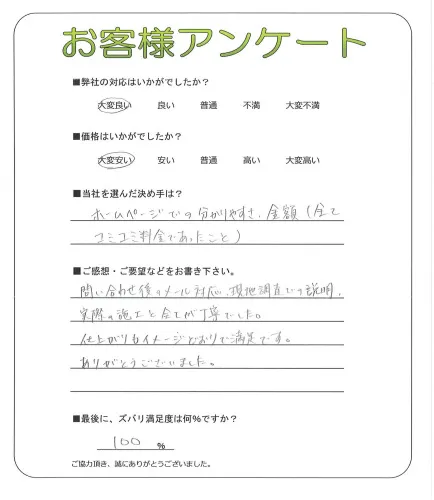 お客様アンケート
■弊社の対応はいかがでしたか？
大変良い 良い 普通 不満 大変不満
■価格はいかがでしたか？
大変安い 安い 普通 高い 大変高い
■当社を選んだ決め手は？
ホームページでの分かりやすさ、金額（全て
コミコミ料金であったこと）
■ご感想・ご要望などをお書き下さい。
問い合わせ後のメール対応、現地調査での説明、
実際の施工と全てが丁寧でした。
仕上がりもイメージどおりで満足です。
ありがとうございました。
■最後に、ズバリ満足度は何%ですか？
100 %
ご協力頂き、誠にありがとうございました。